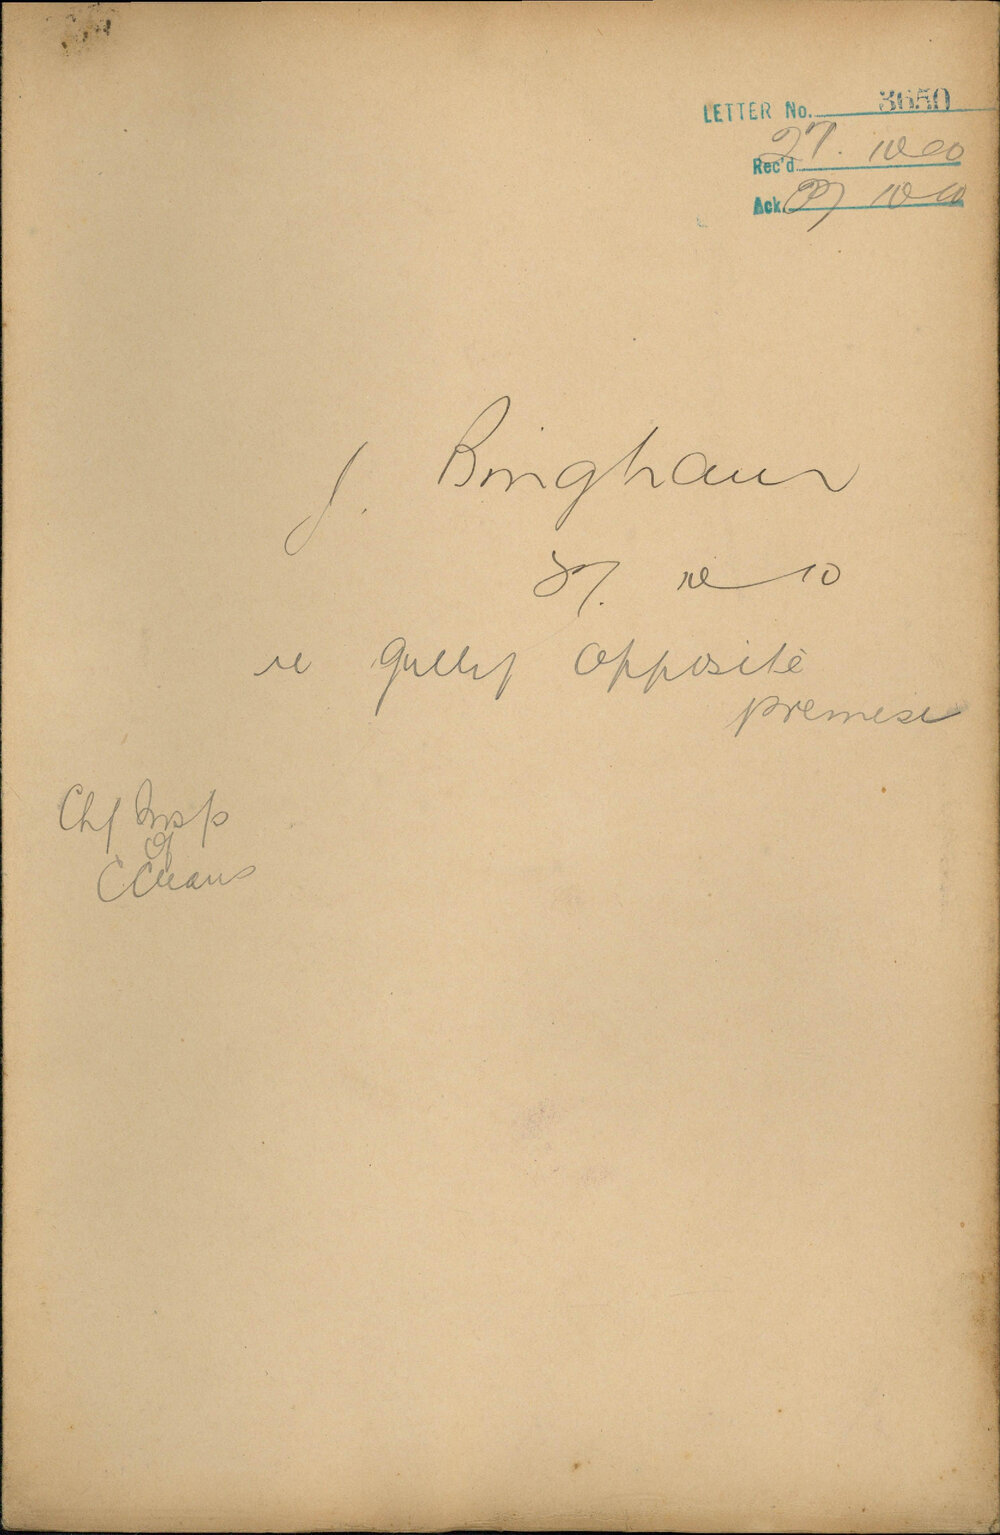 LETTER No. 3650
Rec'd 27. 10 00
Ack. 27 10 00
J. Bingham
27. 10 10
re gully opposite
premise
Chf Insp
of
C Cleans